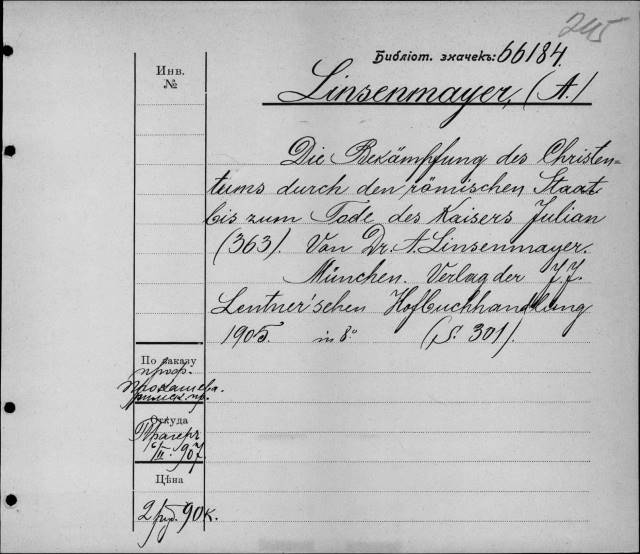 245
Библіот. значекъ: 66184.
Инв.
№
Linsenmayer, (A.)
Die Bekämpfung des Christen=
tums durch den römischen Staat
bis zum Tode des Kaisers Julian
(363). Von Dr. A. Linsenmayer.
München. Verlag der J. J.
Lentner'schen Hofbuchhandlung
1905. in 8° (S. 301).
По заказу
проф.
римск. пр.
Откуда
Трагеръ
16/II. 907.
Цѣна
2 руб. 90 к.